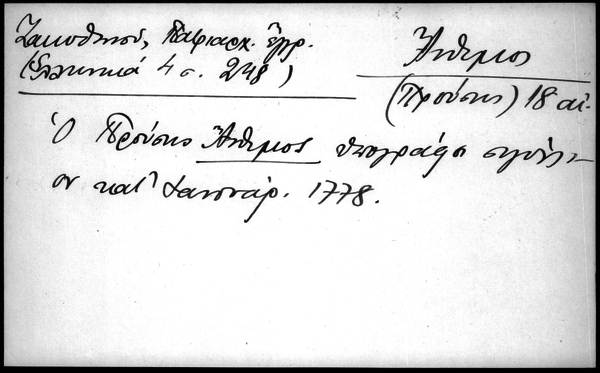 Ζακυθηνού, Πατριαρχ. ἔγγρ.
(Ἑλληνικά 4 σ. 248)
Ἄνθιμος
(Προύσης) 18 αἰ.
Ὁ Προύσης Ἄνθιμος ὑπογράφει σιγίλλι-
ον κατ' Ἰανουάρ. 1778.